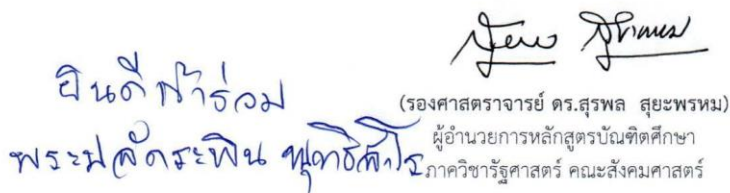 ยินดีเข้าร่วม
พระปลัดระพิน
(รองศาสตราจารย์ ดร.สุรพล สุยะพรหม)
ผู้อำนวยการหลักสูตรบัณฑิตศึกษา
ภาควิชารัฐศาสตร์ คณะสังคมศาสตร์